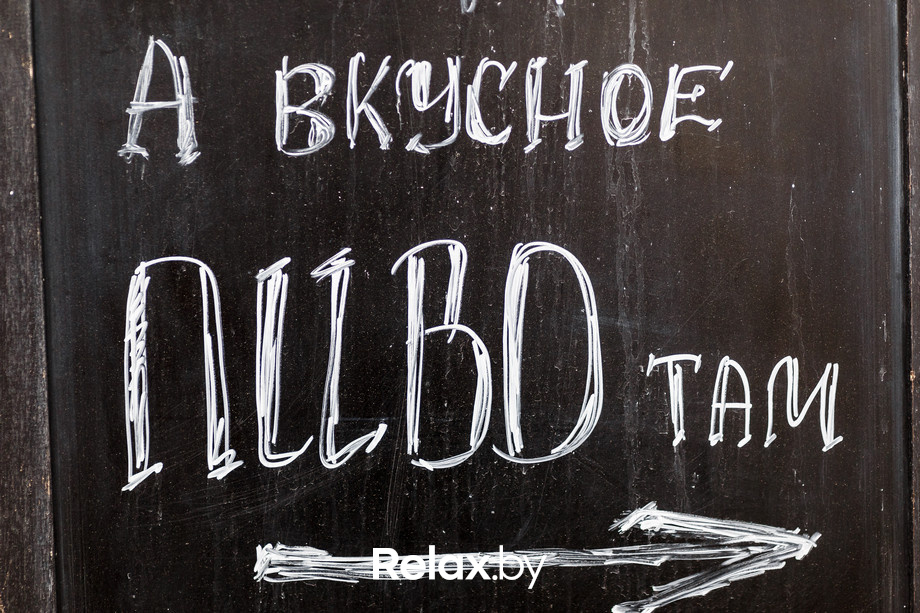 А ВКУСНОЕ
ПИВО ТАМ
Relax.by